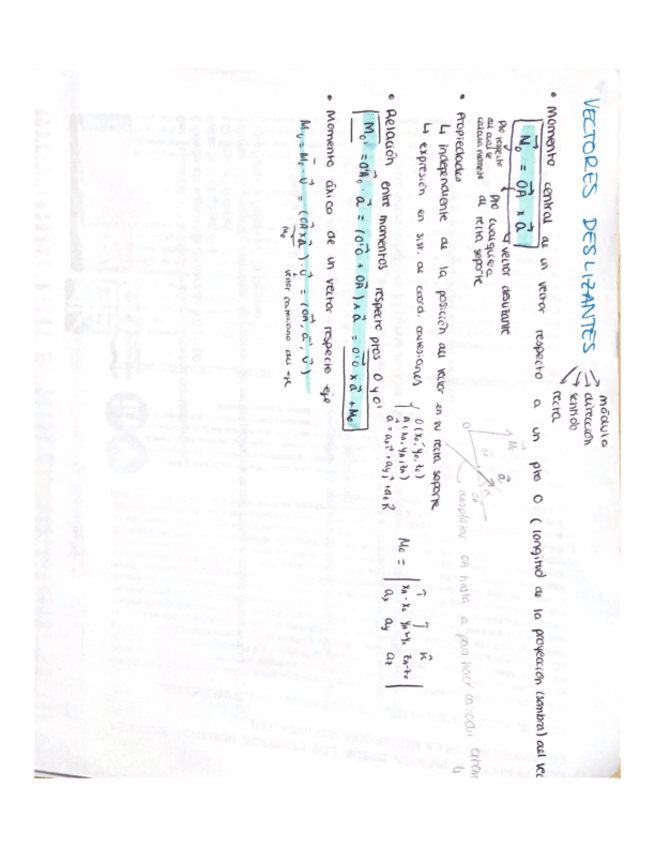 VECTORES DESLIZANTES
módulo
dirección
sentido
recta
• Momento central de un vector respecto a un pto O (longitud de la proyección (sombra) del vec
N⃗o = O⃗A x a⃗
pto respecto al cual se calcula momento
pto cualquiera de recta soporte
vector deslizante
• Propiedades
↳ independiente de la posición del vector en su recta soporte
↳ expresión en sist. de coord. cartesianas
O (xo, yo, zo)
A (xA, yA, zA)
a⃗ = ax i⃗ + ay j⃗ + az k⃗
Mo = | î ĵ k̂
xA-xo yA-yo zA-zo
ax ay az |
desplazar OA hasta a para hacer coincidir
• Relación entre momentos respecto ptos O y O'
= (O'O + OA) ∧ a⃗ = O'O x a⃗ + Mo
• Momento áxico de un vector respecto eje
Mu = Mo · u⃗ = (OA x a⃗) · u⃗ = (OA, a⃗, u⃗)
Mo